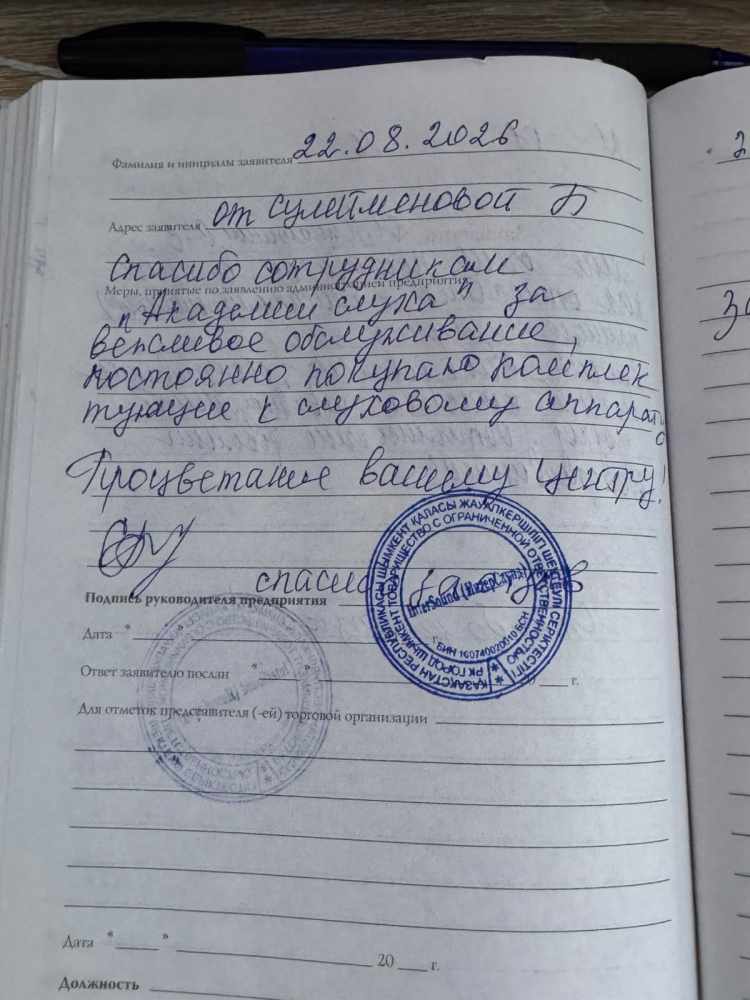 22.08.2026
Фамилия и инициалы заявителя
от Сулейменовой Б
Адрес заявителя
Спасибо сотрудникам
Меры, принятые по заявлению администрацией предприятия
"Академии слуха" за
вежливое обслуживание,
постоянно покупаю комплек
тующие к слуховому аппарату
Процветание вашему Центру!
спасибо за
Подпись руководителя предприятия
ҚАЗАҚСТАН РЕСПУБЛИКАСЫ ШЫМКЕНТ ҚАЛАСЫ ЖАУАПКЕРШІЛІГІ ШЕКТЕУЛІ СЕРІКТЕСТІГІ
РК ГОРОД ШЫМКЕНТ ТОВАРИЩЕСТВО С ОГРАНИЧЕННОЙ ОТВЕТСТВЕННОСТЬЮ
InterSound (ИнтерСаунд)
БИН 160740020010 БСН
Дата "
Ответ заявителю послан " г.
Для отметок представителя (-ей) торговой организации
Дата " " 20 г.
Должность